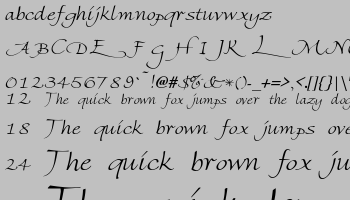 abcdefghijklmnopqrstuvwxyz
ABCDEFGHIJKLMN
0123456789`~!@#$%^&*()-_+=>,<.[]{}|\
12 The quick brown fox jumps over the lazy dog
18 The quick brown fox jumps
24 The quick brown fox ju